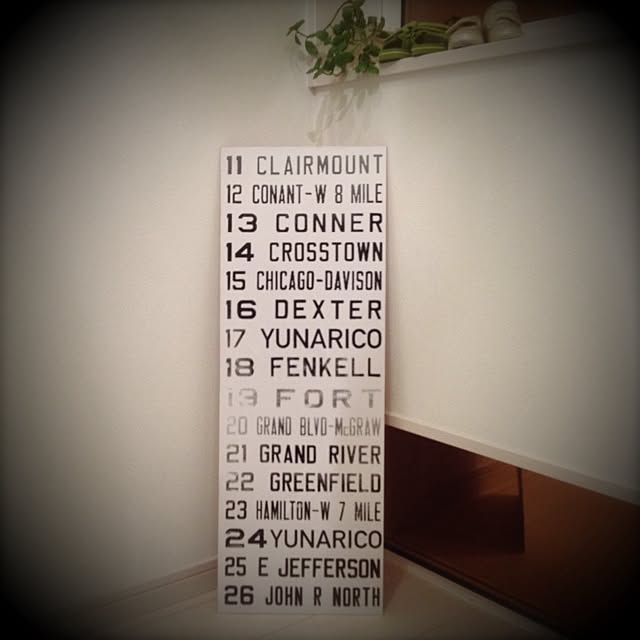 11 CLAIRMOUNT
12 CONANT-W 8 MILE
13 CONNER
14 CROSSTOWN
15 CHICAGO-DAVISON
16 DEXTER
17 YUNARICO
18 FENKELL
19 FORT
20 GRAND BLVD-McGRAW
21 GRAND RIVER
22 GREENFIELD
23 HAMILTON-W 7 MILE
24 YUNARICO
25 E JEFFERSON
26 JOHN R NORTH